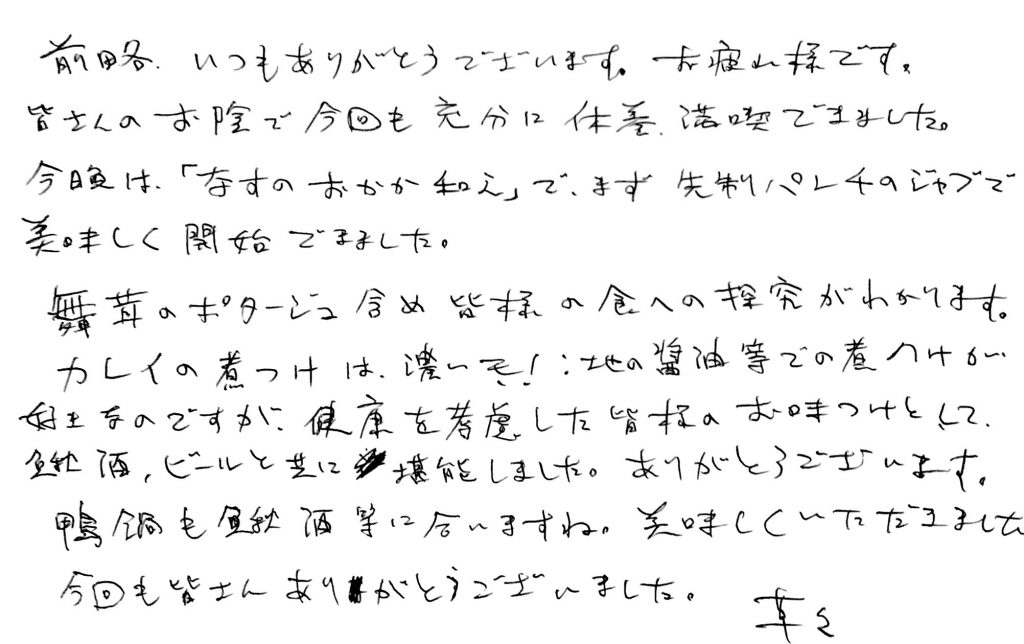 前略、いつもありがとうございます。お疲れ様です。
皆さんのお陰で今回も充分に休養、満喫できました。
今晩は、「なすのおかか和え」で、まず先制パンチのジャブで
美味しく開始できました。
舞茸のポタージュ含め皆様の食への探究がわかります。
カレイの煮つけは、濃いモ!:地の醤油等での煮つけが
好きなのですが、健康を考慮した皆様のお味つけとして、
酒、ビールと共に堪能しました。ありがとうございます。
鴨鍋も酒等に合いますね。美味しくいただきました
今回も皆さんありがとうございました。
草々